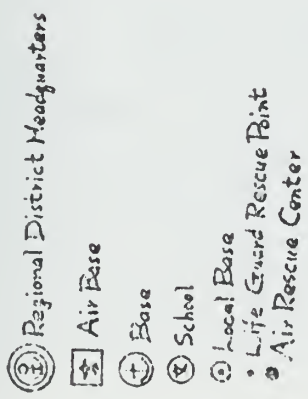 Regional District Headquarters
Air Base
Base
School
Local Base
Life Guard Rescue Point
Air Rescue Center